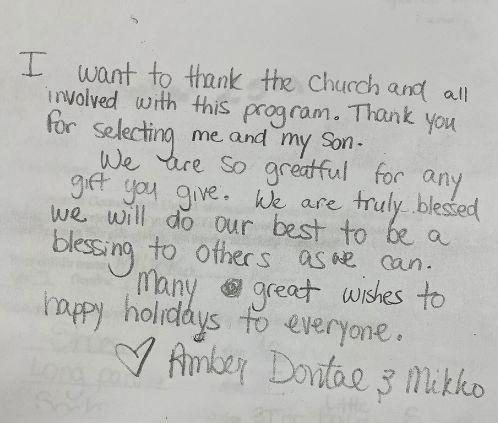 I want to thank the church and all
involved with this program. Thank you
for selecting me and my son.
We are so greatful for any
gift you give. We are truly blessed
we will do our best to be a
blessing to others as we can.
Many great wishes to
happy holidays to everyone.
♡ Amber Dontae & Mikko